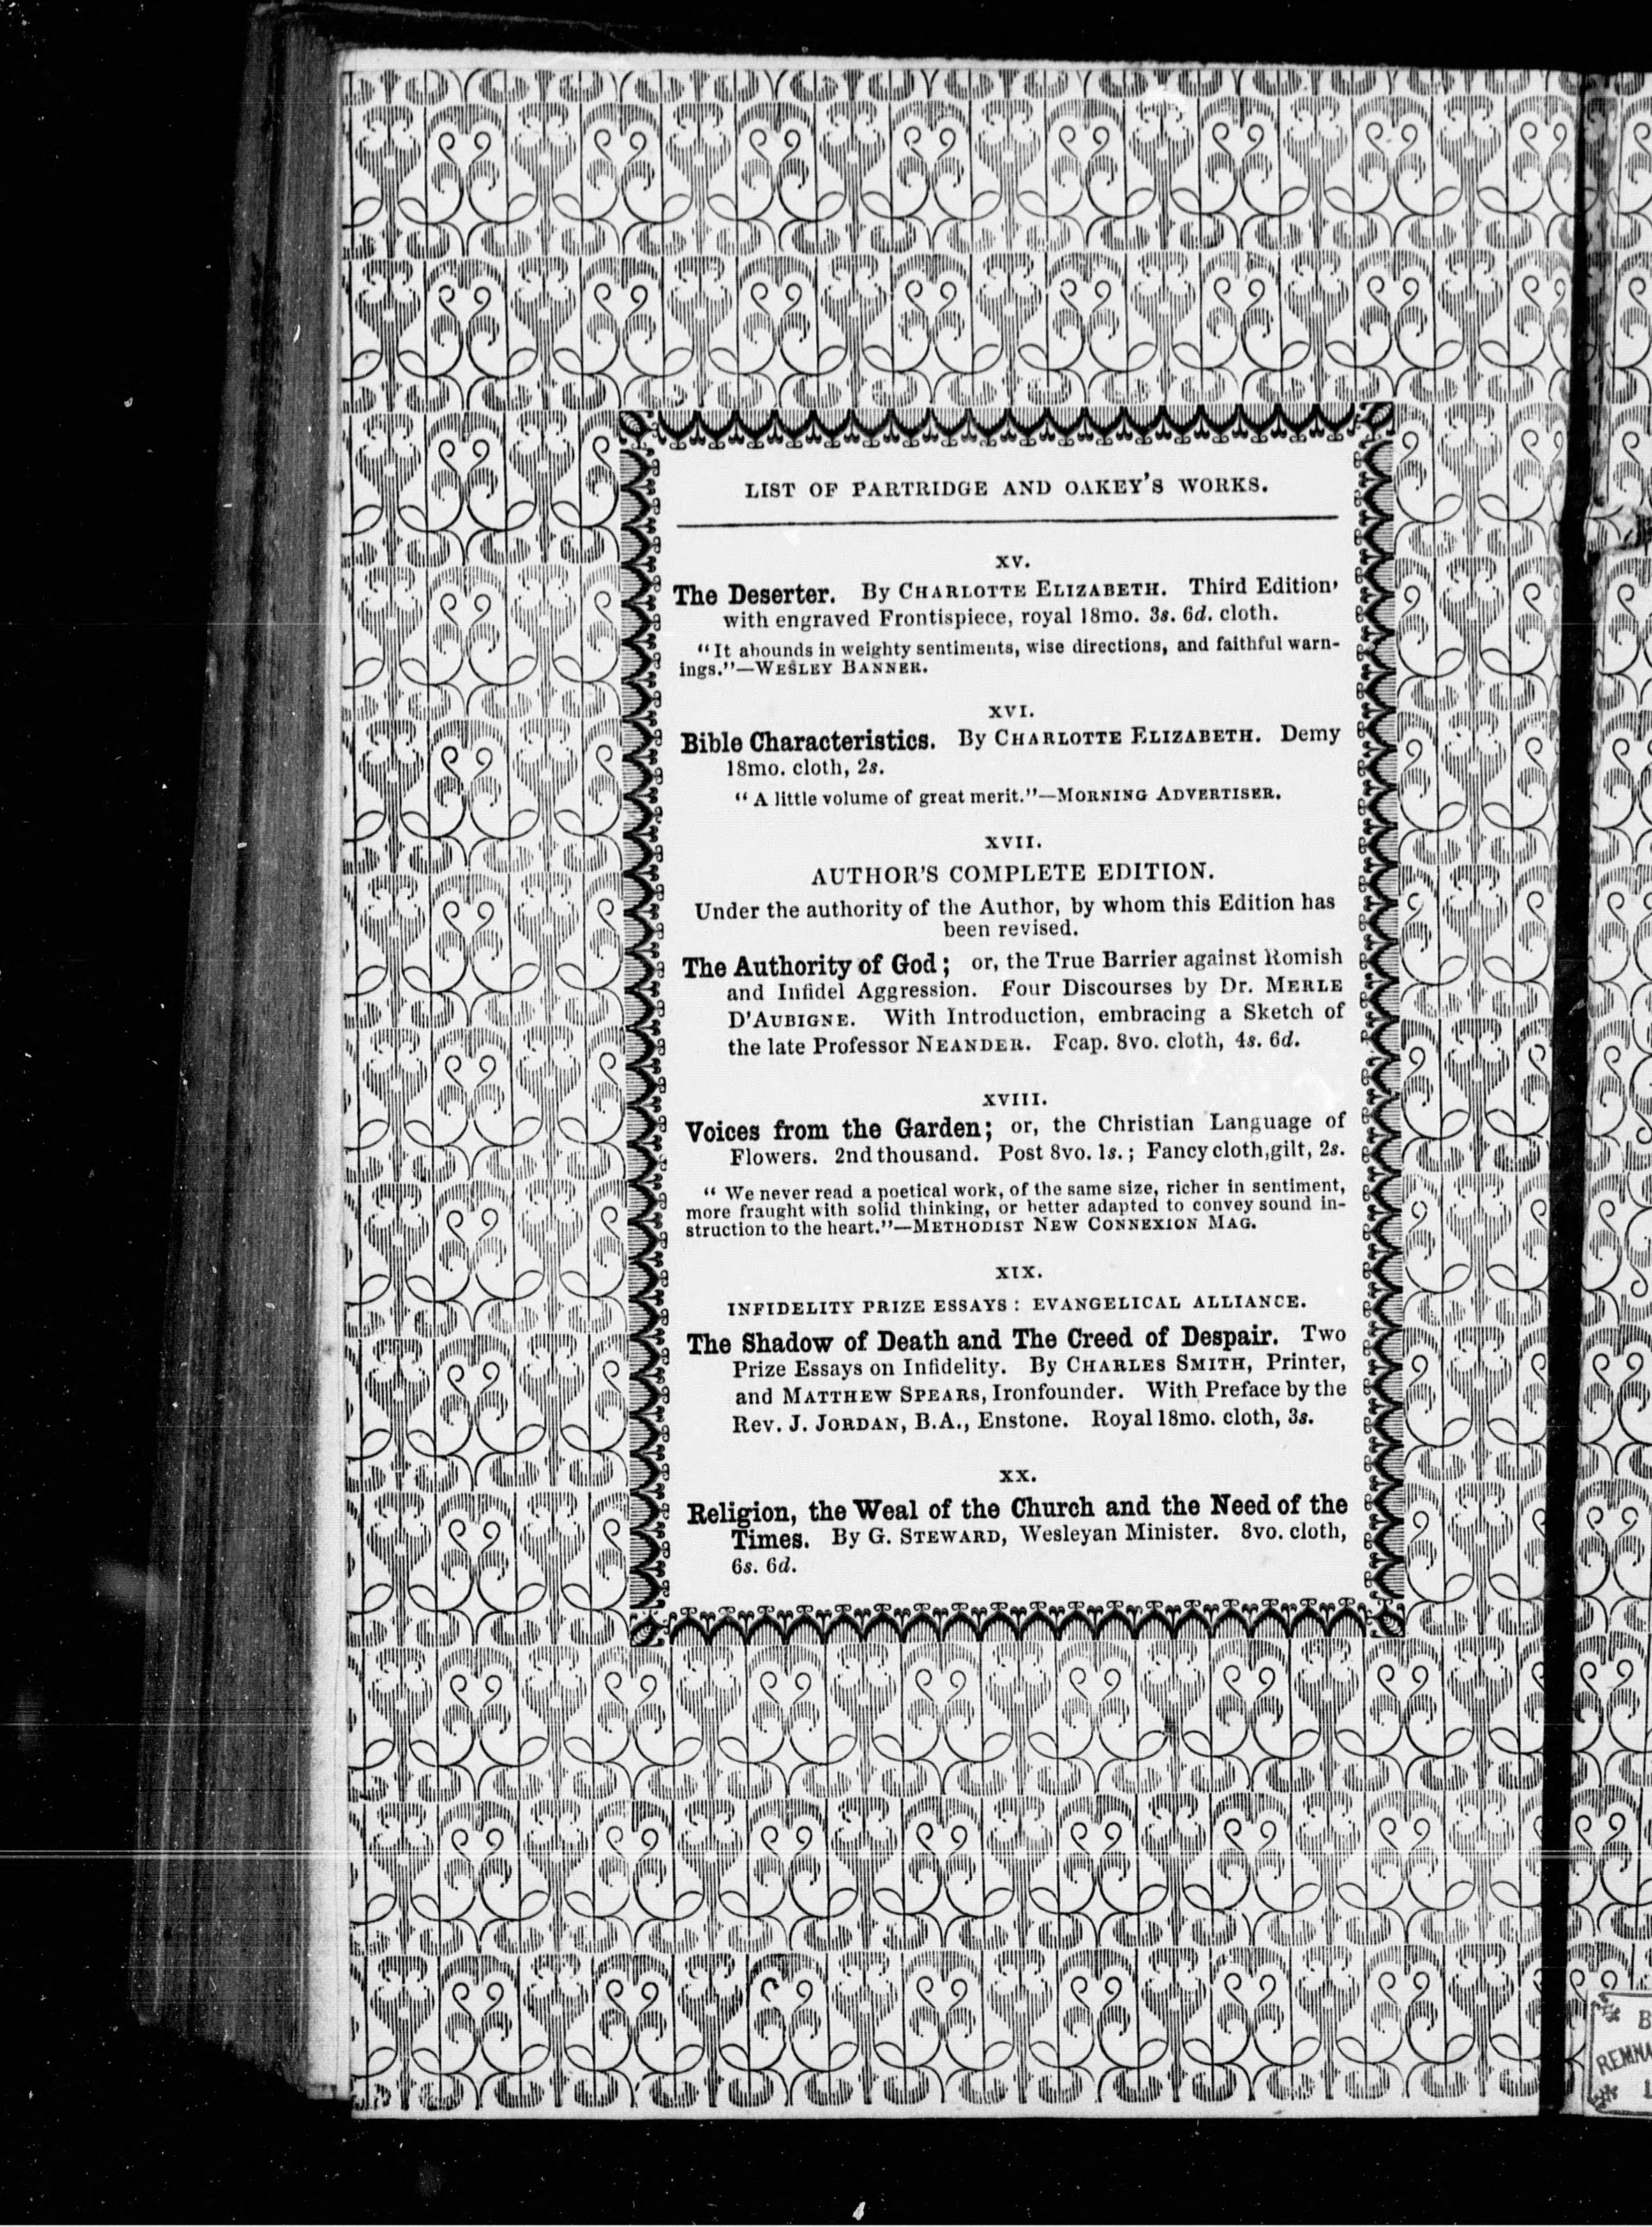 LIST OF PARTRIDGE AND OAKEY'S WORKS.
XV.
The Deserter. By CHARLOTTE ELIZABETH. Third Edition'
with engraved Frontispiece, royal 18mo. 3s. 6d. cloth.
"It abounds in weighty sentiments, wise directions, and faithful warn-
ings."—WESLEY BANNER.
XVI.
Bible Characteristics. By CHARLOTTE ELIZABETH. Demy
18mo. cloth, 2s.
"A little volume of great merit."—MORNING ADVERTISER.
XVII.
AUTHOR'S COMPLETE EDITION.
Under the authority of the Author, by whom this Edition has
been revised.
The Authority of God; or, the True Barrier against Romish
and Infidel Aggression. Four Discourses by Dr. MERLE
D'AUBIGNE. With Introduction, embracing a Sketch of
the late Professor NEANDER. Fcap. 8vo. cloth, 4s. 6d.
XVIII.
Voices from the Garden; or, the Christian Language of
Flowers. 2nd thousand. Post 8vo. 1s.; Fancy cloth, gilt, 2s.
"We never read a poetical work, of the same size, richer in sentiment,
more fraught with solid thinking, or better adapted to convey sound in-
struction to the heart."—METHODIST NEW CONNEXION MAG.
XIX.
INFIDELITY PRIZE ESSAYS: EVANGELICAL ALLIANCE.
The Shadow of Death and The Creed of Despair. Two
Prize Essays on Infidelity. By CHARLES SMITH, Printer,
and MATTHEW SPEARS, Ironfounder. With Preface by the
Rev. J. JORDAN, B.A., Enstone. Royal 18mo. cloth, 3s.
XX.
Religion, the Weal of the Church and the Need of the
Times. By G. STEWARD, Wesleyan Minister. 8vo. cloth,
6s. 6d.